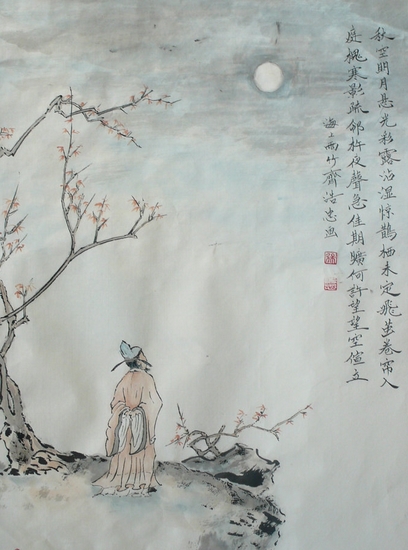 秋空明月悬光彩露沾湿惊鹊栖未定飛萤卷帘入
庭槐寒影疏邻杵夜聲急佳期曠何許望望空伫立
海南竹齋浩忠画